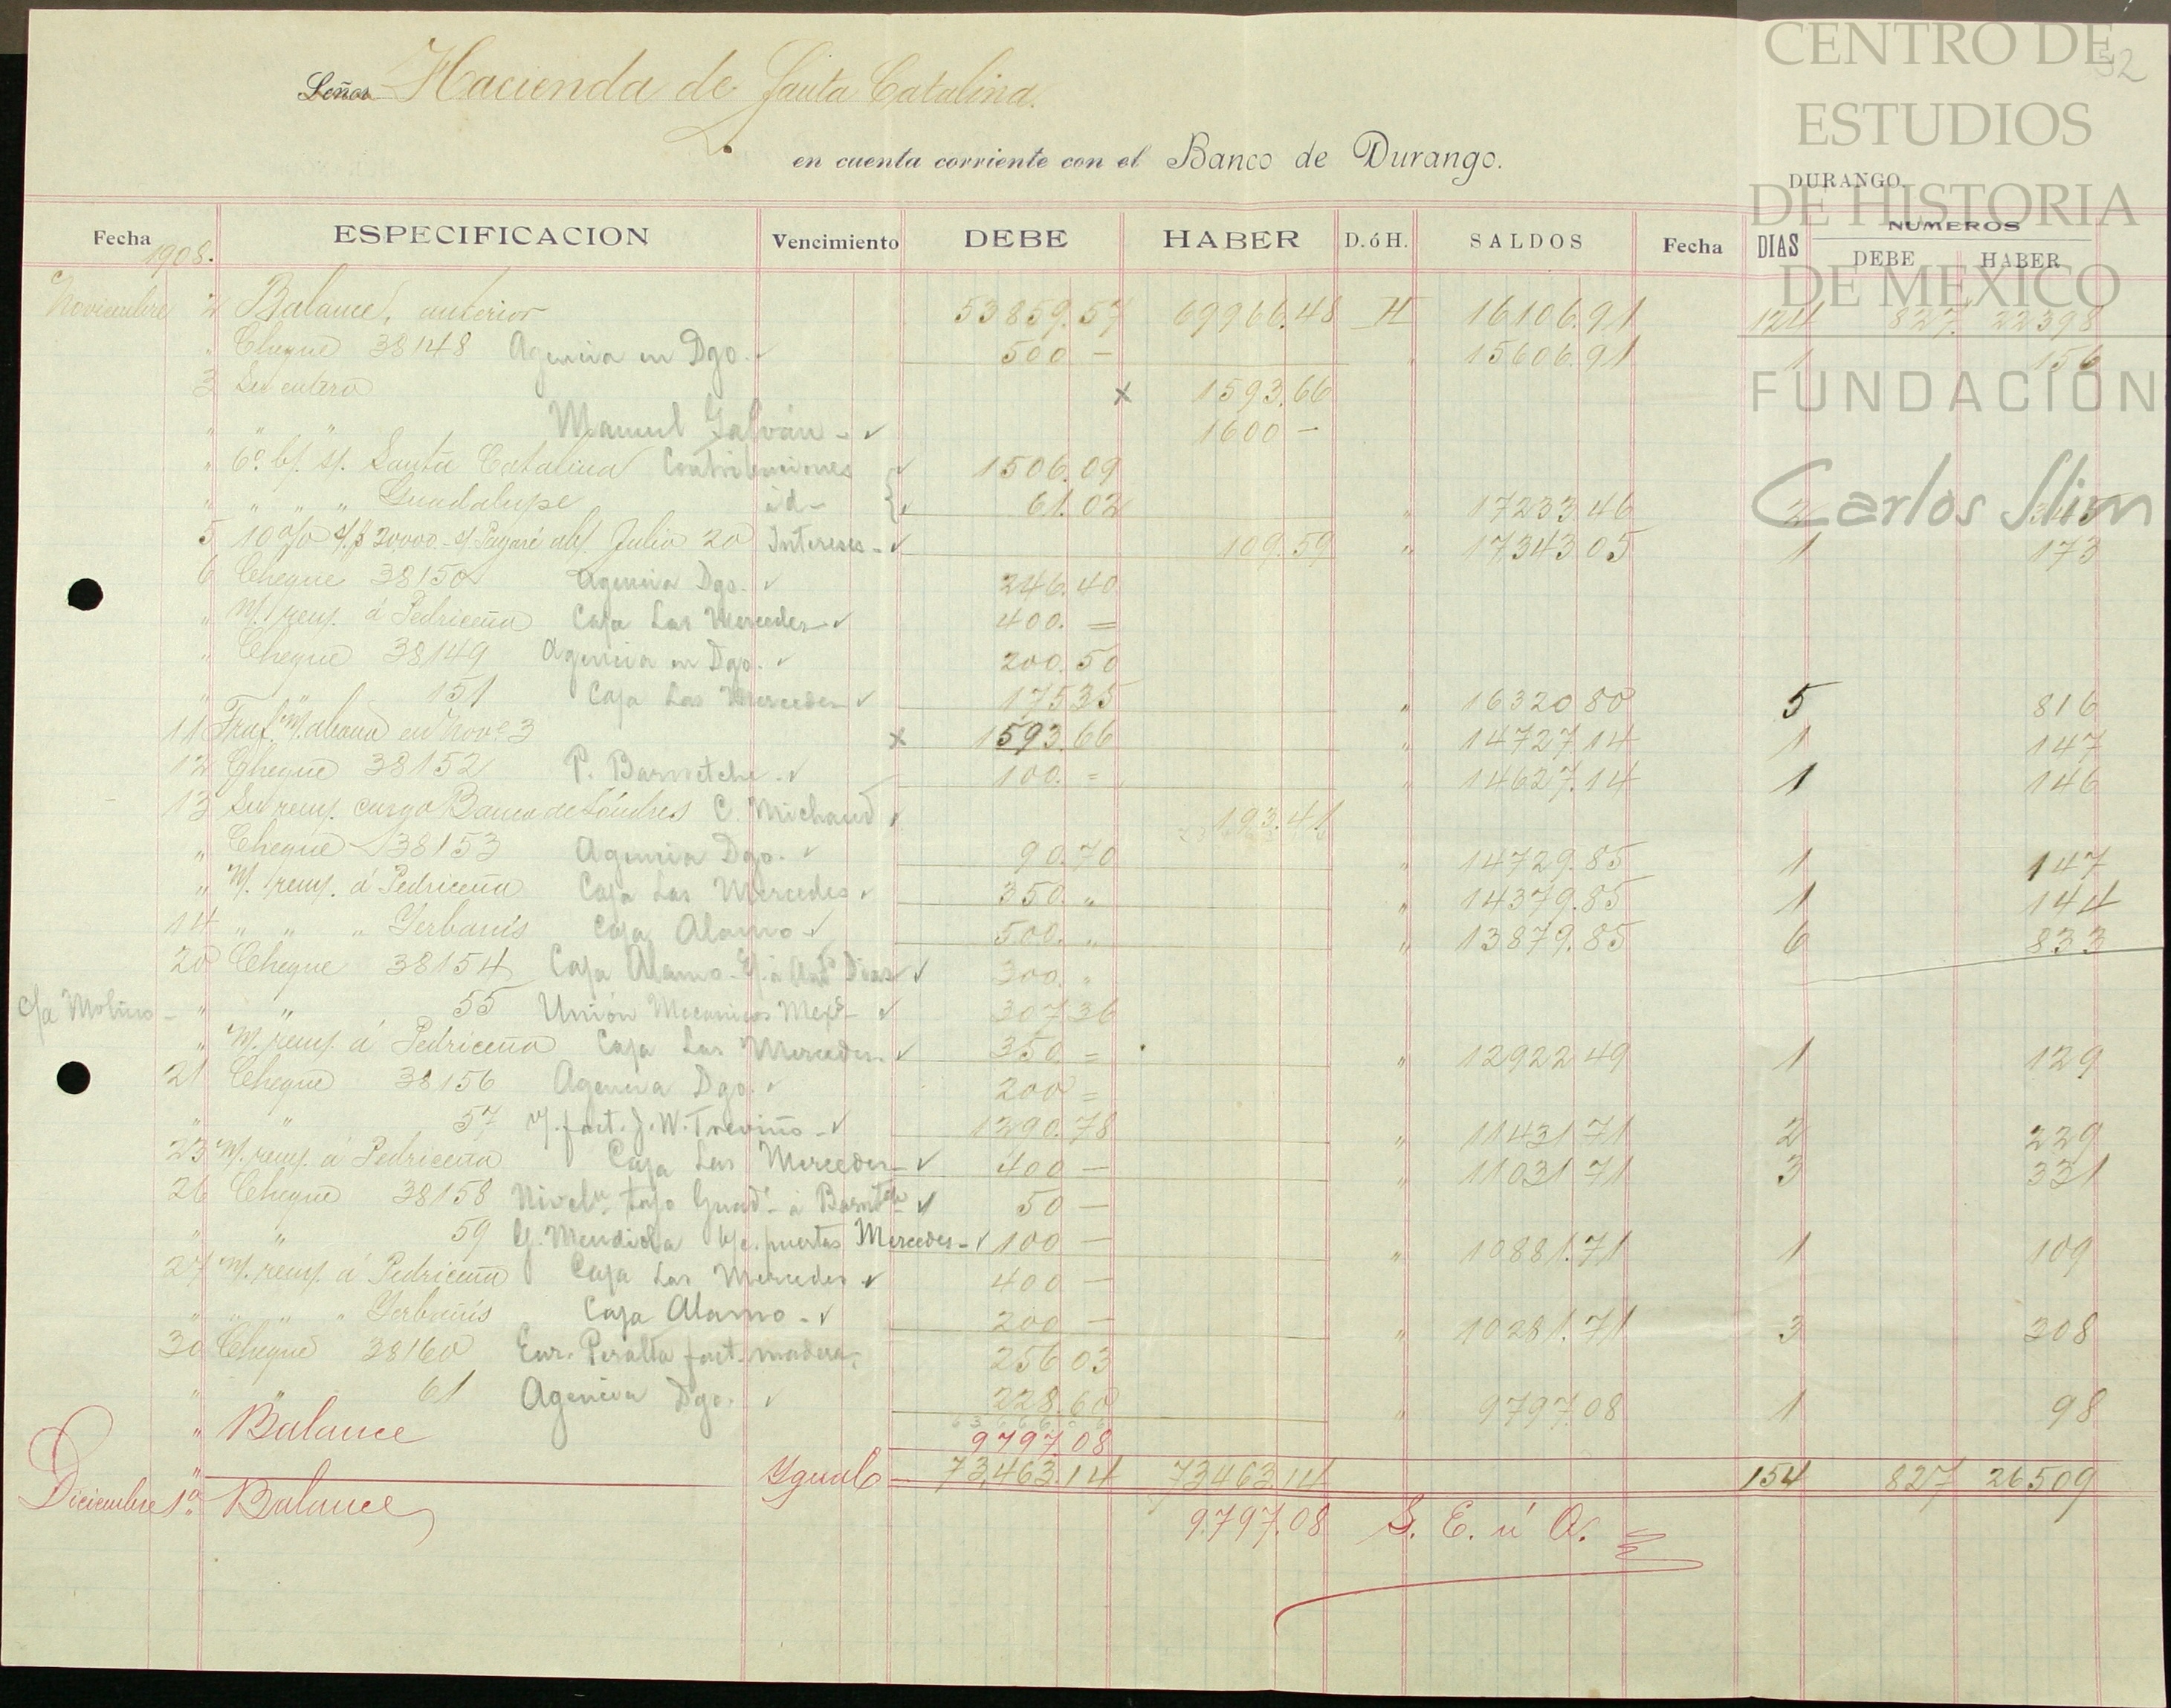 CENTRO DE
ESTUDIOS
DE HISTORIA
DE MEXICO
FUNDACIÓN
Carlos Slim
52
Señor Hacienda de Santa Catalina.
en cuenta corriente con el Banco de Durango.
DURANGO.
Fecha ESPECIFICACION Vencimiento DEBE HABER D. ó H. SALDOS Fecha DIAS NUMEROS DEBE HABER
1908.
Noviembre 2 Balance, anterior 53859.57 69966.48 H 16106.91 124 827. 22398
" Cheque 38148 Agencia en Dgo. ✓ 500 - " 15606.91 1 156
3 Su entero x 1593.66
" " " Manuel Galván - ✓ 1600 -
" 6º b/. s/. Santa Catalina Contribuciones ✓ 1506.09
" " " " Guadalupe id - ✓ 61.02 " 17233.46 2 345
5 10% s/. $ 20000.- s/ Pagaré ab/. Julio 20 Intereses - ✓ 109.59 " 17343 05 1 173
6 Cheque 38150 Agencia Dgo. ✓ 246.40
" M/. rem/. á Pedriceña Caja Las Mercedes - ✓ 400. =
" Cheque 38149 Agencia en Dgo. ✓ 200.50
" " 151 Caja Las Mercedes ✓ 175 35 " 16320 80 5 816
11 Traf. M/. abono en Nove. 3 x 1593.66 " 14727 14 1 147
12 Cheque 38152 P. Barnetche - ✓ 100. = " 14627.14 1 146
13 Su rem/. cargo Banco de Lóndres C. Michaud ✓ 193.41
" Cheque 38153 Agencia Dgo. ✓ 90.70 " 14729.85 1 147
" M/. rem/. á Pedriceña Caja Las Mercedes ✓ 350. " " 14379.85 1 144
14 " " " Yerbanís Caja Alamo - ✓ 500. " " 13879.85 6 833
20 Cheque 38154 Caja Alamo - á Anto. Dias ✓ 300. "
c/a Molino - " " 55 Unión Mecanicos Mexs - ✓ 307 36
" M/. rem/. á Pedriceña Caja Las Mercedes - ✓ 350 = " 12922 49 1 129
21 Cheque 38156 Agencia Dgo. ✓ 200 =
" " 57 s/. fact. J. W. Treviño - ✓ 1290.78 " 11431 71 2 229
23 M/. rem/. á Pedriceña Caja Las Mercedes - ✓ 400 - " 11031 71 3 331
26 Cheque 38158 Niveln. tajo Guade. - á Barntche ✓ 50 -
" " 59 G. Mendiola puertas Mercedes - ✓ 100 - " 10881.71 1 109
27 M/. rem/. á Pedriceña Caja Las Mercedes ✓ 400 -
" " " " Yerbanís Caja Alamo - ✓ 200 - " 10281.71 3 308
30 Cheque 38160 Enr. Peralta fact. madera. 256 03
" " 61 Agencia Dgo. ✓ 228.60 " 9797 08 1 98
63666 06
" Balance 9797 08
" Yguals 73,463.14 73463.14 154 827 26509
Diciembre 1º Balance 9.797.08 S. E. ú O.